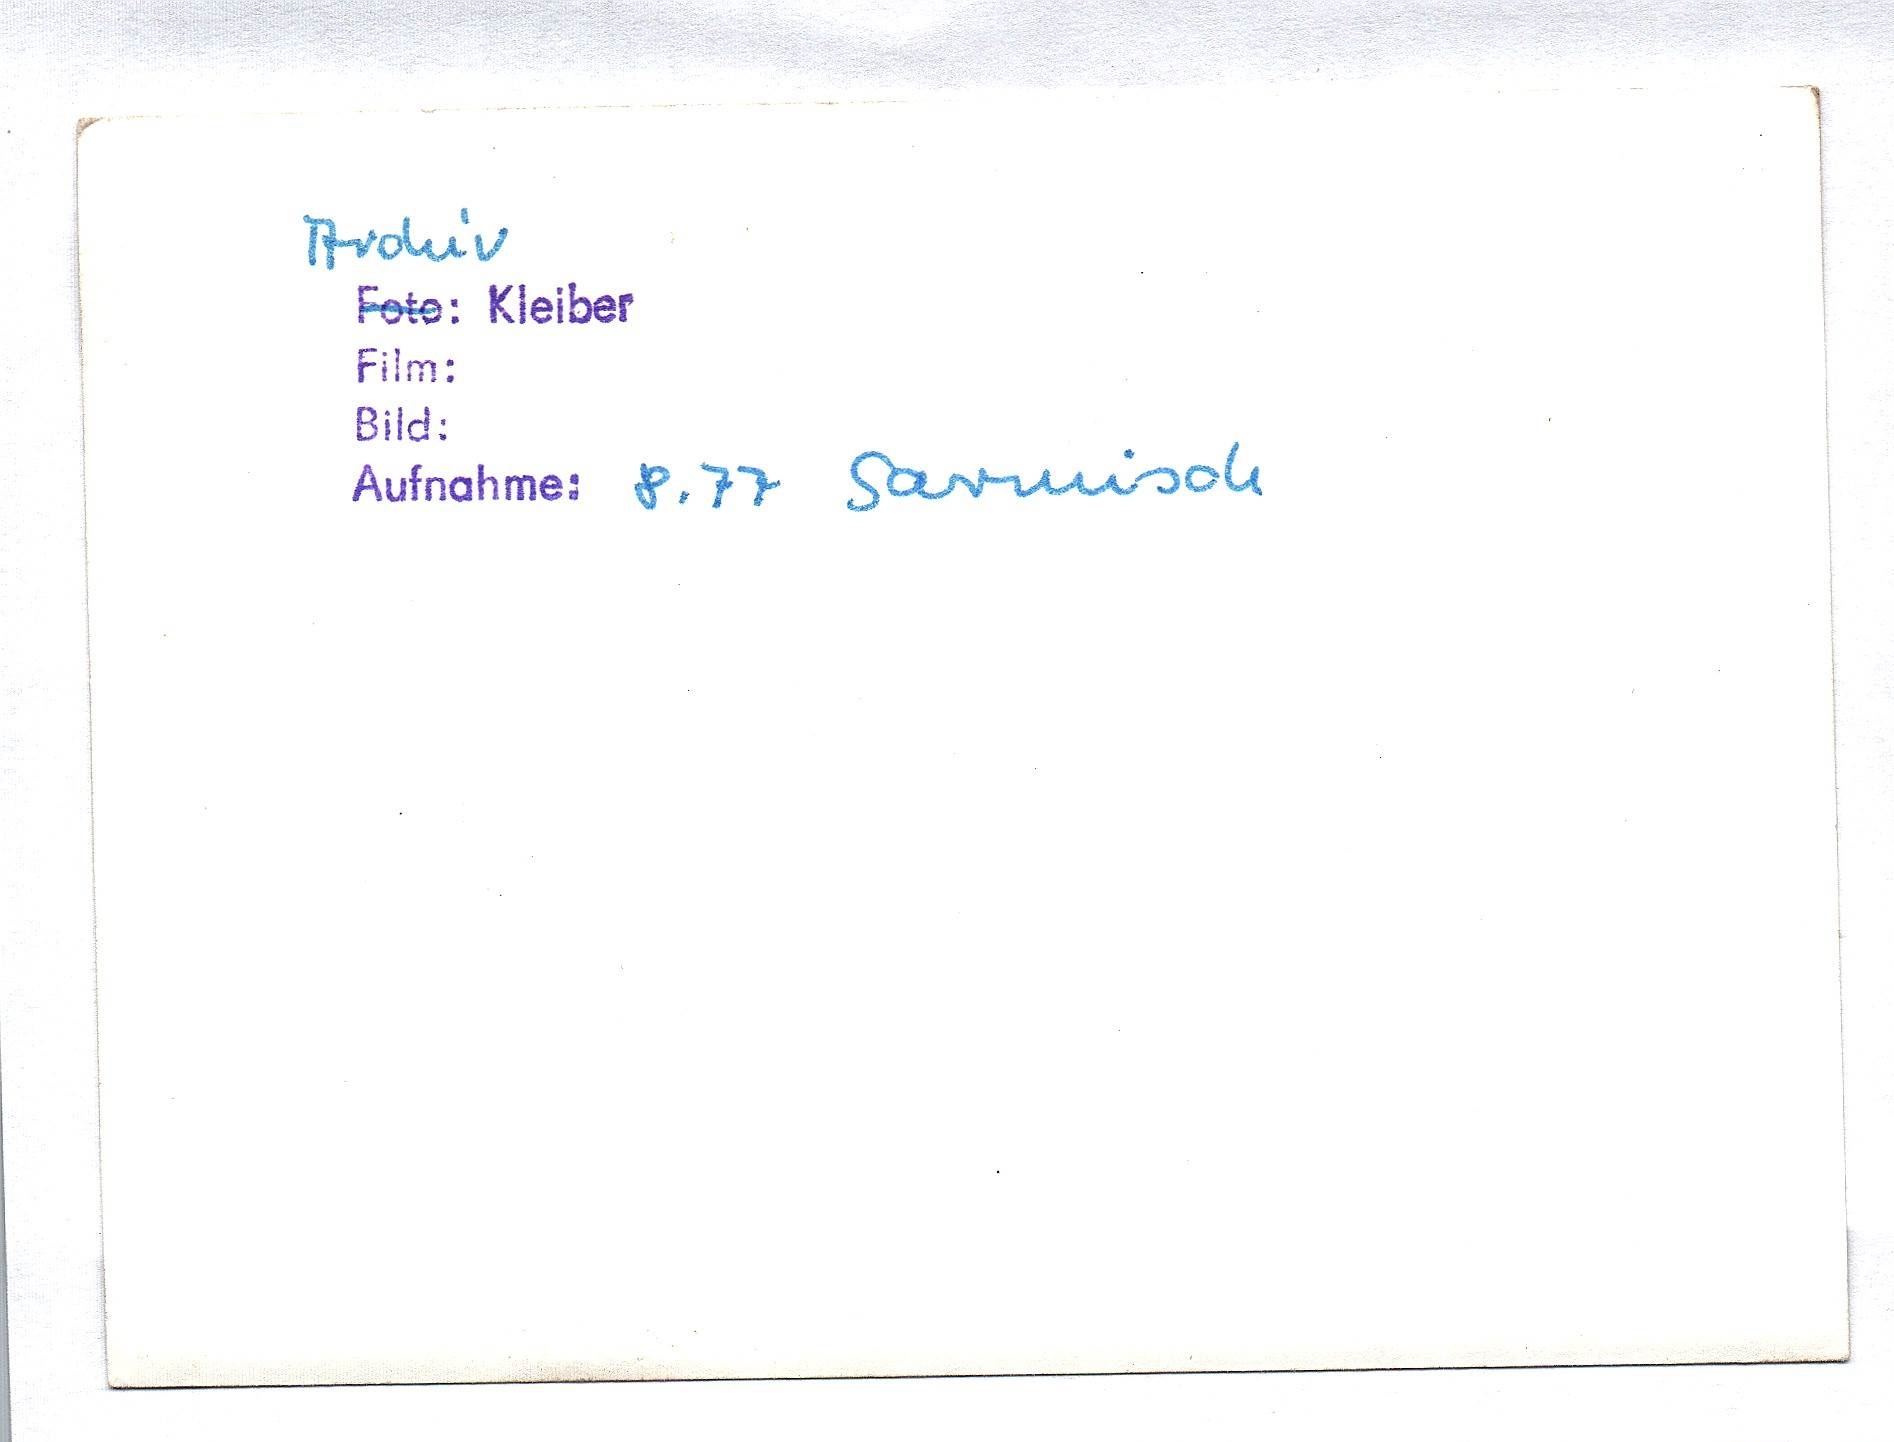 Archiv
Foto: Kleiber
Film:
Bild:
Aufnahme: 8.77 Garmisch